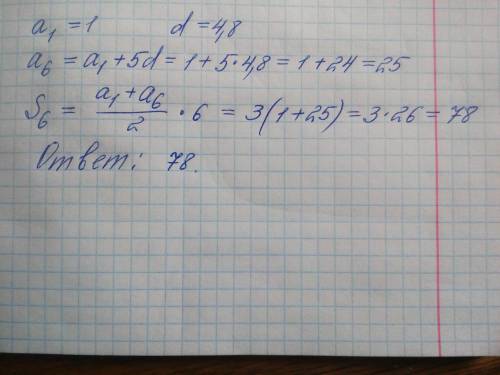 a₁ = 1 d = 4,8
a₆ = a₁ + 5d = 1 + 5·4,8 = 1 + 24 = 25
S₆ = (a₁ + a₆)/2 · 6 = 3(1+25) = 3·26 = 78
Ответ: 78.